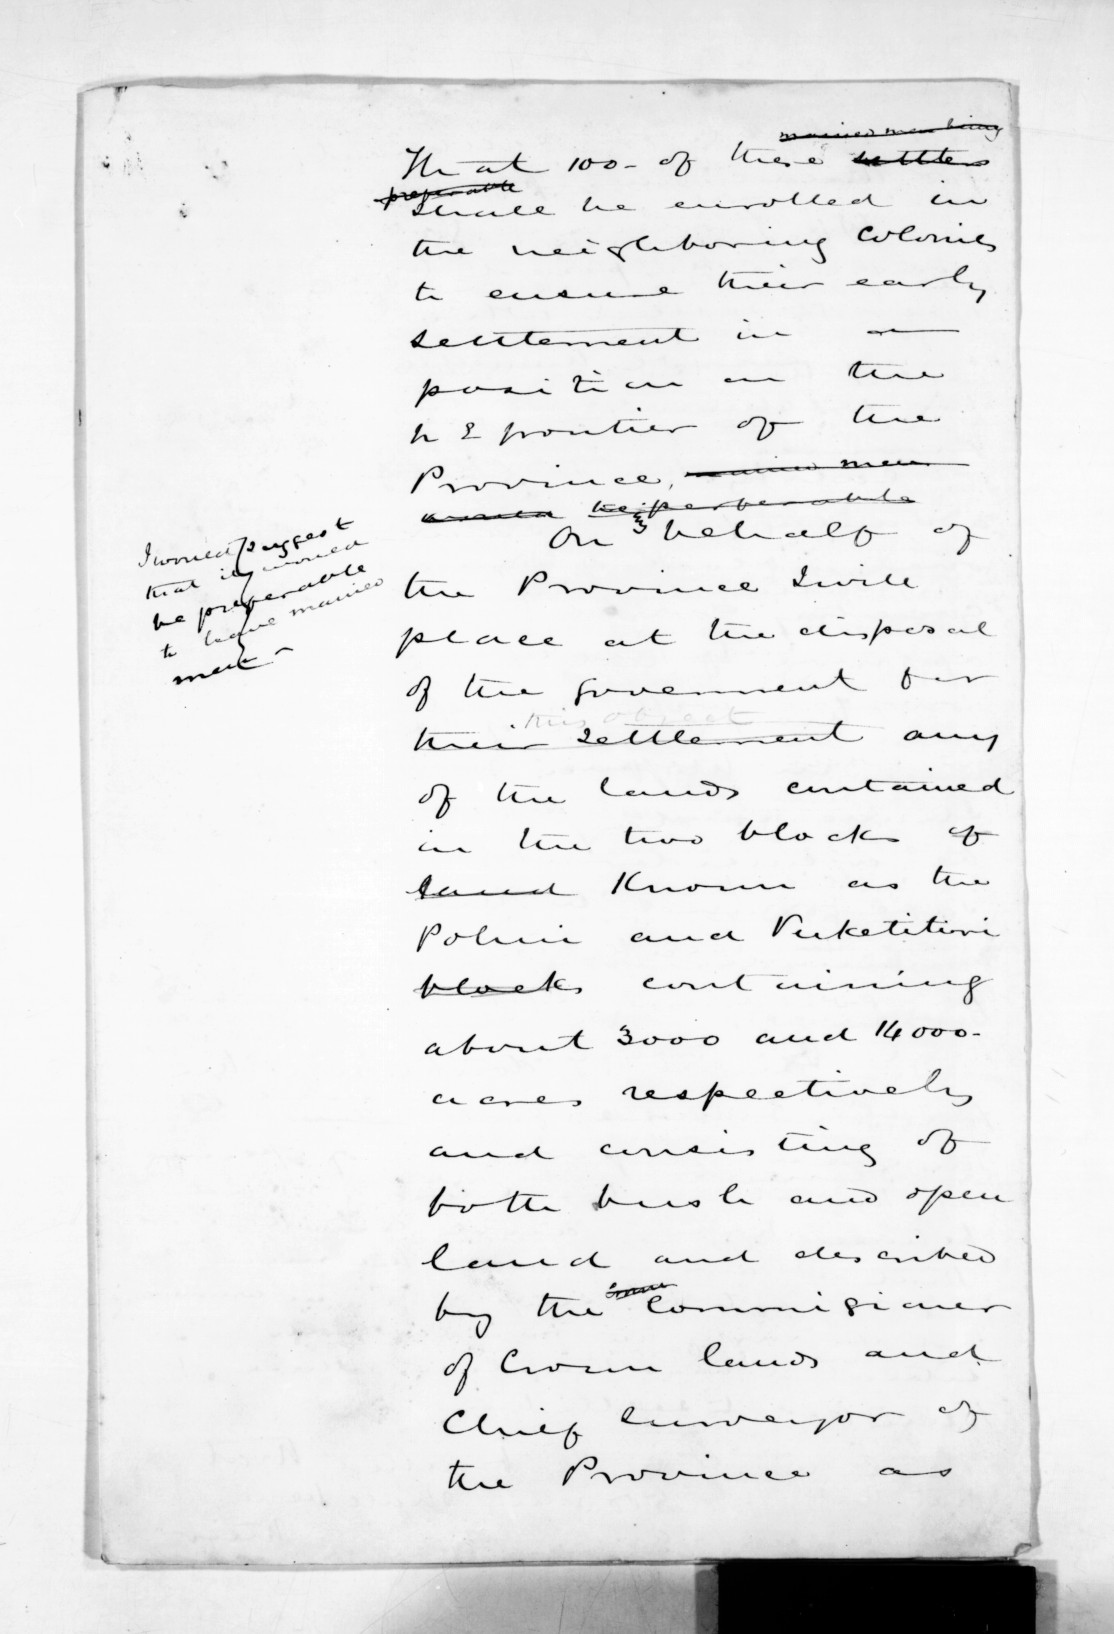 married men being
That 100 - of these settlers
preferable
shall be enrolled in
the neighboring Colonies
to ensure their early
settlement in a
position on the
N E frontier of the
Province, married men
would be preferable
On behalf of
I would suggest
that it would
be preferable
to have married
men -
the Province I will
place at the disposal
of the government for
this object
their settlement any
of the lands contained
in the two blocks of
land Known as the
Pohui and Puketitiri
blocks containing
about 3000 and 14000 -
acres respectively
and consisting of
both bush and open
land and described
by the Commissioner
of Crown lands and
Chief Surveyor of
the Province as